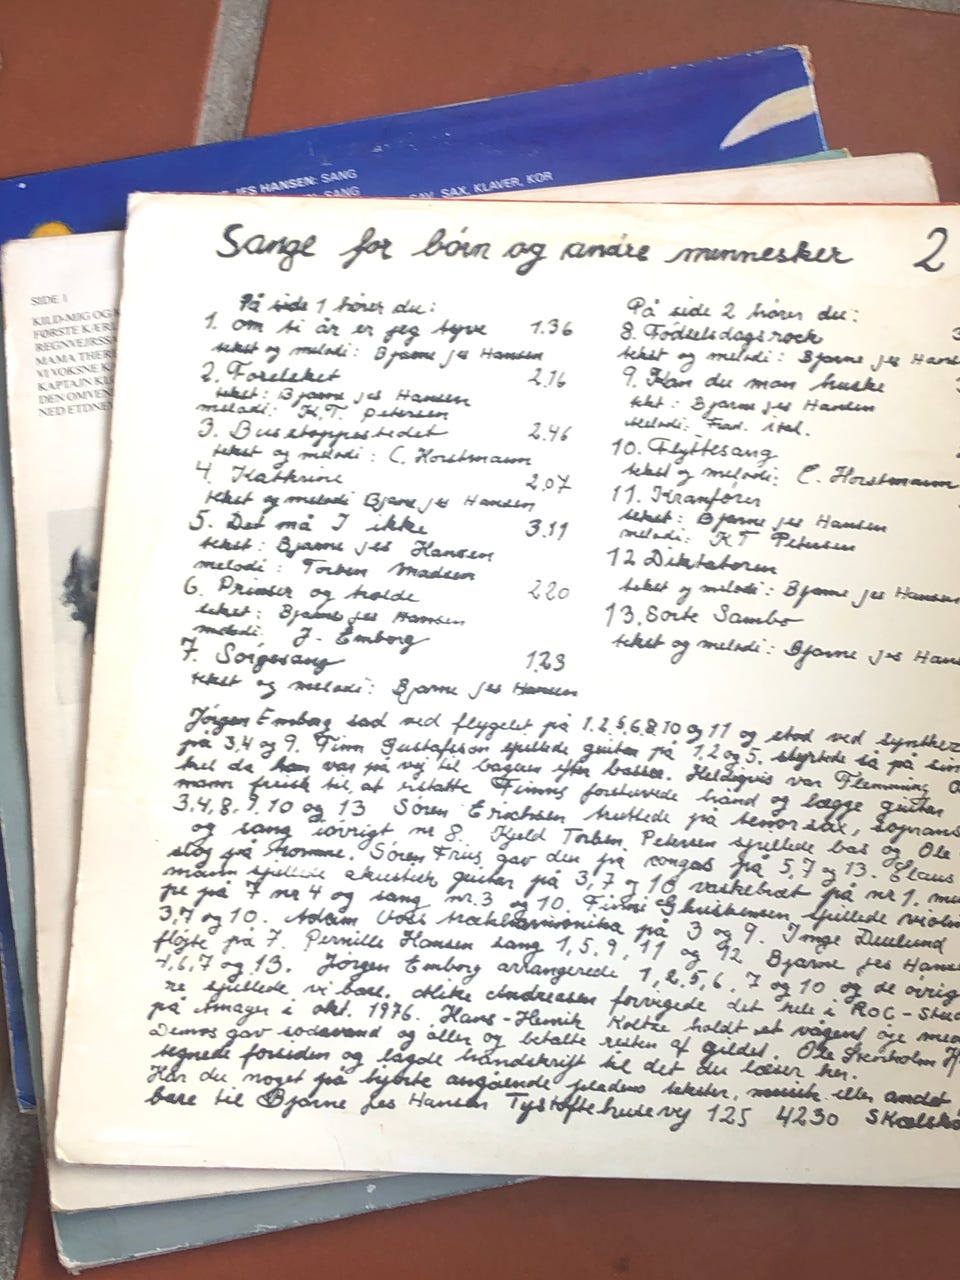 JES HANSEN: SANG
SANG
SAV, SAX, KLAVER, KOR
SIDE 1
KILD-MIG OG K
FØRSTE KÆRL
REGNVEJRSS
MAMA THER
VI VOKSNE K
KAPTAIN KL
DEN OMVEN
NED ETDNE
Sange for børn og andre mennesker 2
På side 1 hører du:
1. om ti år er jeg tyve 1.36
tekst og melodi: Bjarne Jes Hansen
2. Forelsket 2.16
tekst: Bjarne Jes Hansen
melodi: K.T. Petersen
3. Busstoppestedet 2.46
tekst og melodi: C. Horstmann
4. Kathrine 2.07
tekst og melodi Bjarne Jes Hansen
5. Det må I ikke 3.11
tekst: Bjarne Jes Hansen
melodi: Torben Madsen
6. Prinser og trolde 2.20
tekst: Bjarne Jes Hansen
melodi: J. Emborg
7. Sørgesang 1.23
tekst og melodi: Bjarne Jes Hansen
På side 2 hører du:
8. Fødselsdagsrock 3
tekst og melodi: Bjarne Jes Hans
9. Kan du man huske
tekst: Bjarne Jes Hansen
Melodi: Trad. ital.
10. Flyttesang
tekst og melodi: C. Horstmann
11. Kranfører
tekst: Bjarne Jes Hansen
melodi: KT Petersen
12 Diktatoren
tekst og melodi: Bjarne Jes Hansen
13. Sorte Sambo
tekst og melodi: Bjarne Jes Hans
Jørgen Emborg sad ved flygelet på 1.2.5.6.8.10 og 11 og stod ved synthez
på 3,4 og 9. Finn Gustafsson spillede guitar på 1,2 og 5. styrtede så på sin
kel da han var på vej til bageren efter basser. Heldigvis var Flemming O
mann frisk til at erstatte Finns forstuvede hånd og lægge guitar
3.4.8.9.10 og 13 Søren Erichsen truttede på tenorsax, soprans
og sang iøvrigt nr 8. Kjeld Torben Petersen spillede bas og Ole
slog på tromme. Søren Friis gav den på congas på 5,7 og 13. Claus
mann spillede akustisk guitar på 3,7 og 10 vaskebræt på nr 1. mu
pe på 7 nr 4 og sang nr. 3 og 10. Finn G Christensen spillede violin
3,7 og 10. Adam Voss trækharmonika på 3 og 9. Inge Duelund
fløjte på 7. Pernille Hansen sang 1,5,9,11 og 12 Bjarne Jes Hans
4,6,7 og 13. Jørgen Emborg arrangerede 1,2,5,6, 7 og 10 og de øvrig
re spillede vi bare. Mike Andreasen forevigede det hele i ROC-Stud
på Amager i okt. 1976. Hans-Henrik Koltze holdt et vågent øje med
Demos gav sodavand og øller og betalte resten af gildet. Ole Stenholm H
tegnede forsiden og lagde håndskrift til det du læser her.
Har du noget på hjerte angående pladens tekster, musik eller andet
bare til Bjarne Jes Hansen Tystoftehusevej 125 4230 Skælskø